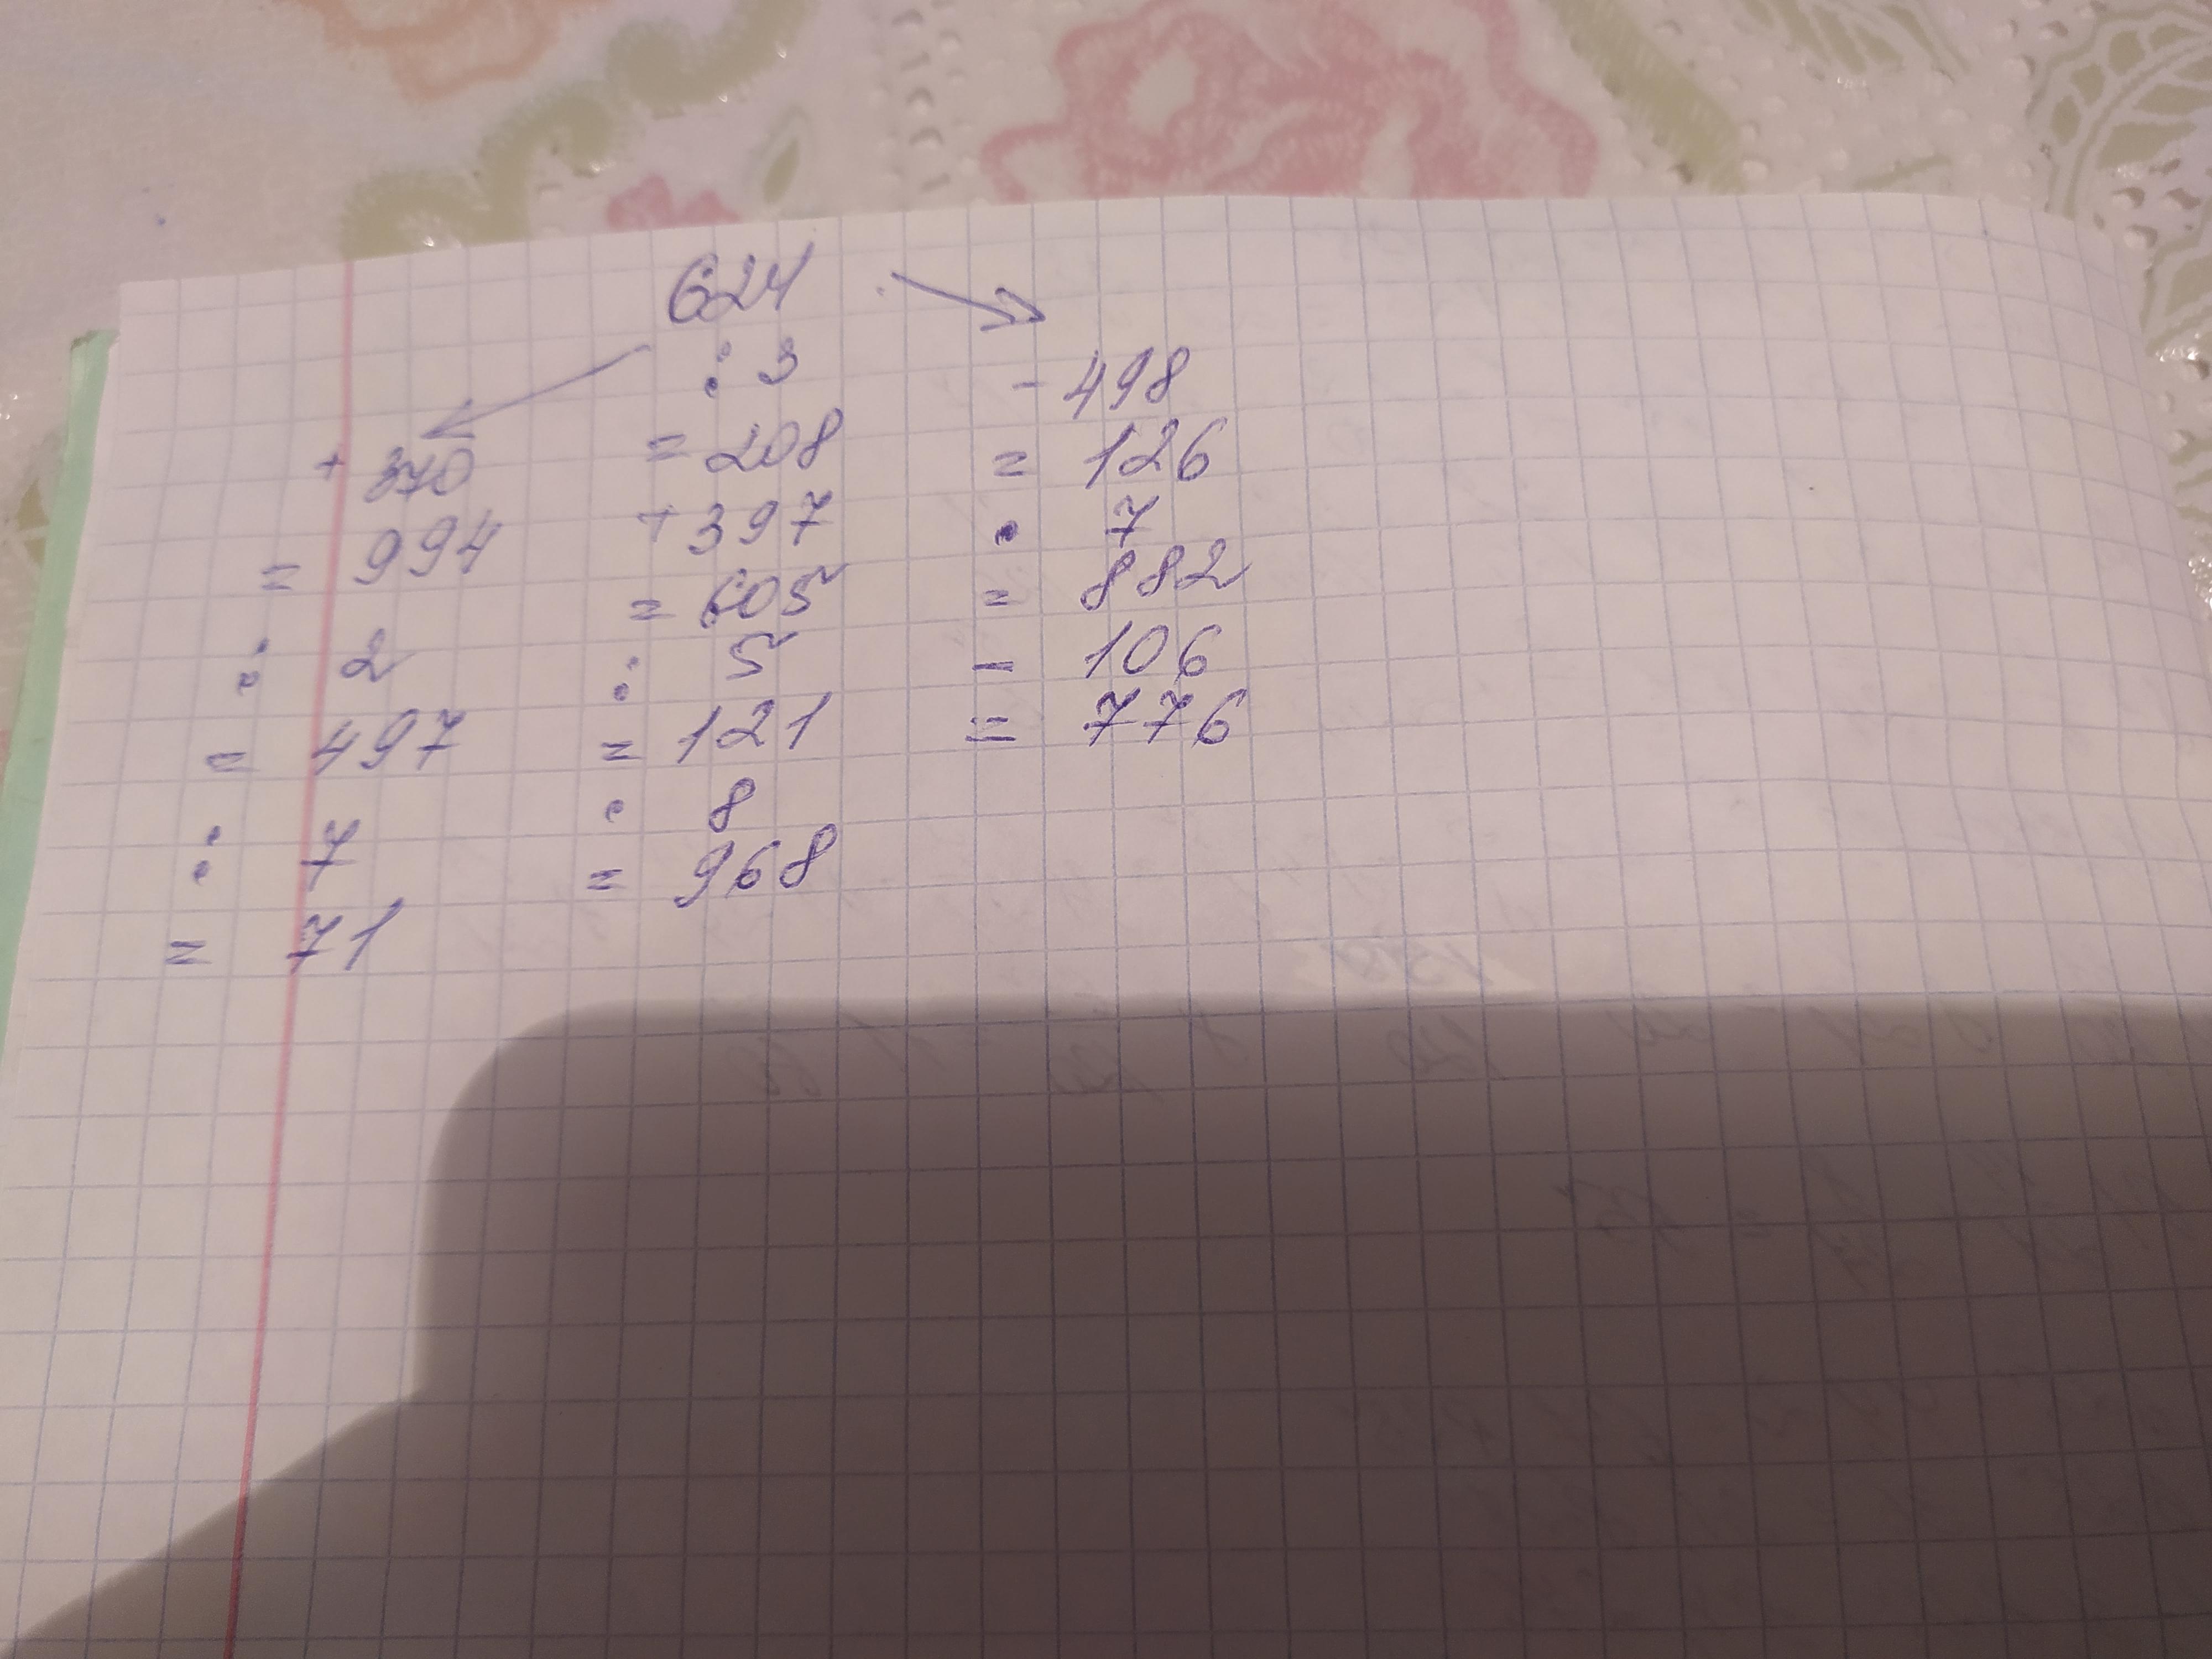 624
+ 370
= 994
: 2
= 497
: 7
= 71
: 3
= 208
+ 397
= 605
: 5
= 121
· 8
= 968
- 498
= 126
· 7
= 882
- 106
= 776